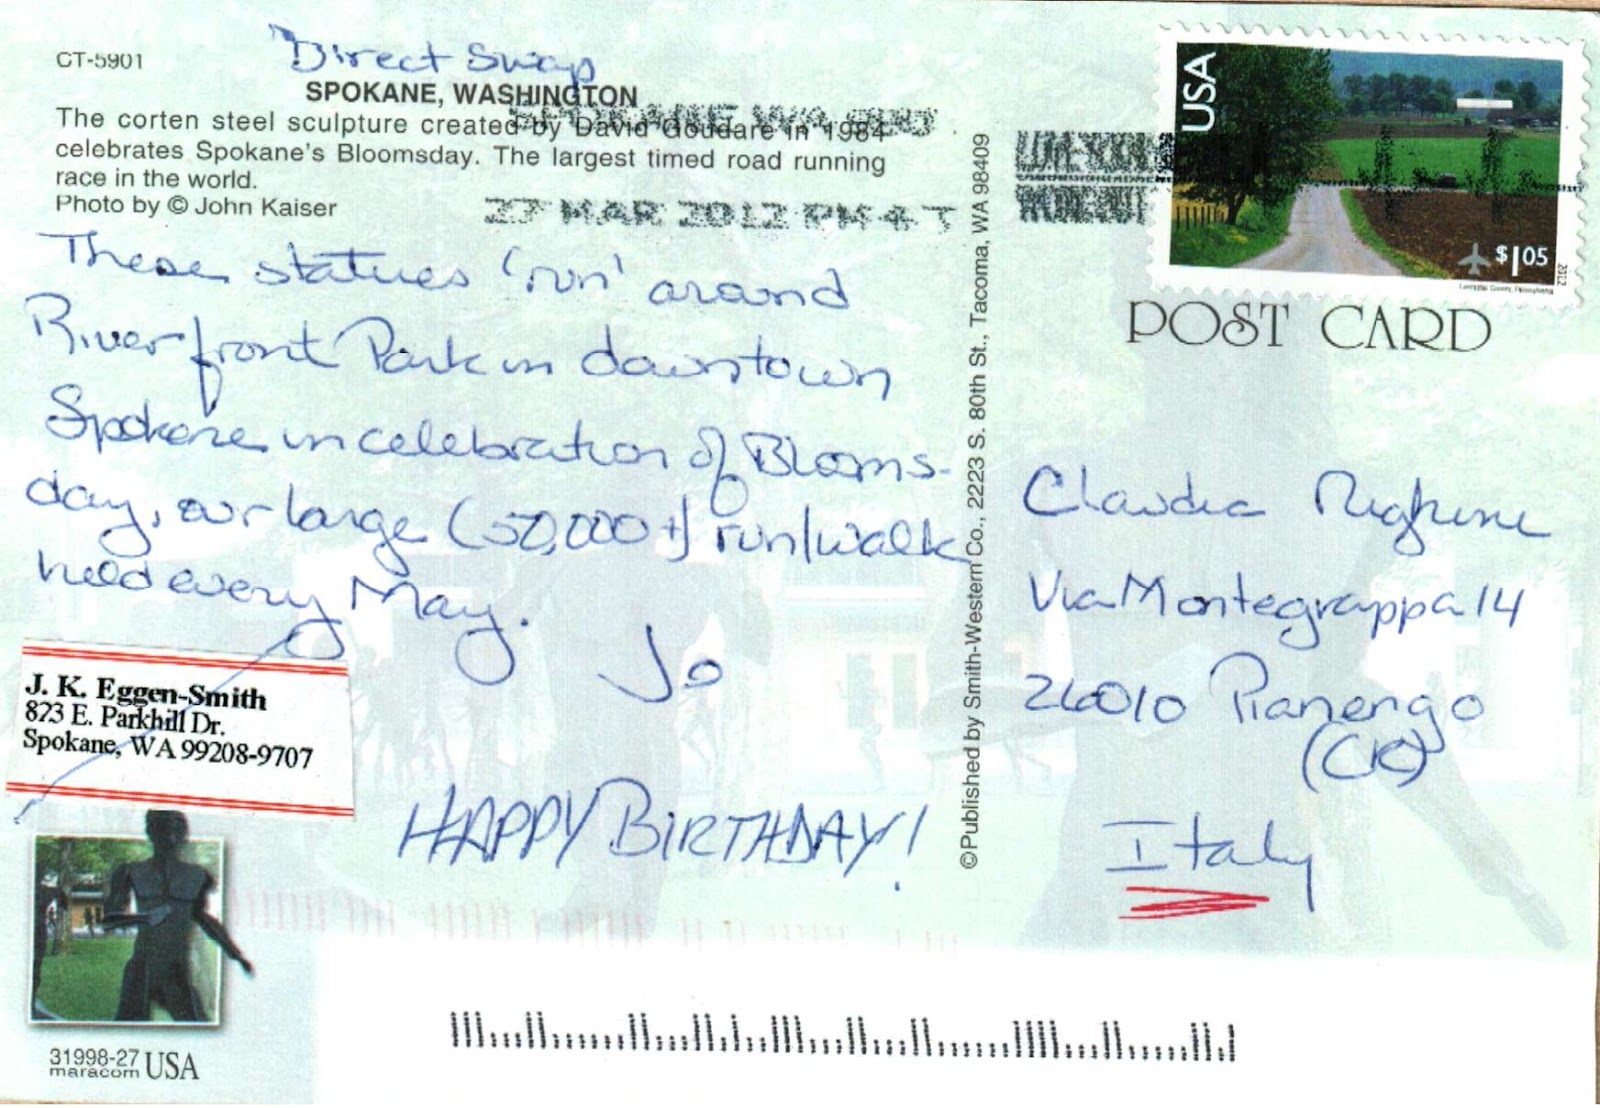 CT-5901
Direct Swap
SPOKANE, WASHINGTON
The corten steel sculpture created by David Goudare in 1984
celebrates Spokane's Bloomsday. The largest timed road running
race in the world.
Photo by © John Kaiser
SPOKANE WA
27 MAR 2012 PM 4 T
These statues 'run' around
Riverfront Park in downtown
Spokane in celebration of Blooms-
day, our large (50,000+) run/walk
held every May.
Jo
J. K. Eggen-Smith
823 E. Parkhill Dr.
Spokane, WA 99208-9707
HAPPY BIRTHDAY!
31998-27
maracom USA
©Published by Smith-Western Co., 2223 S. 80th St., Tacoma, WA 98409
USA
$1.05
2012
Lancaster County, Pennsylvania
POST CARD
Claudia
Via Montegrappa 14
26010 Pianengo
(CR)
Italy